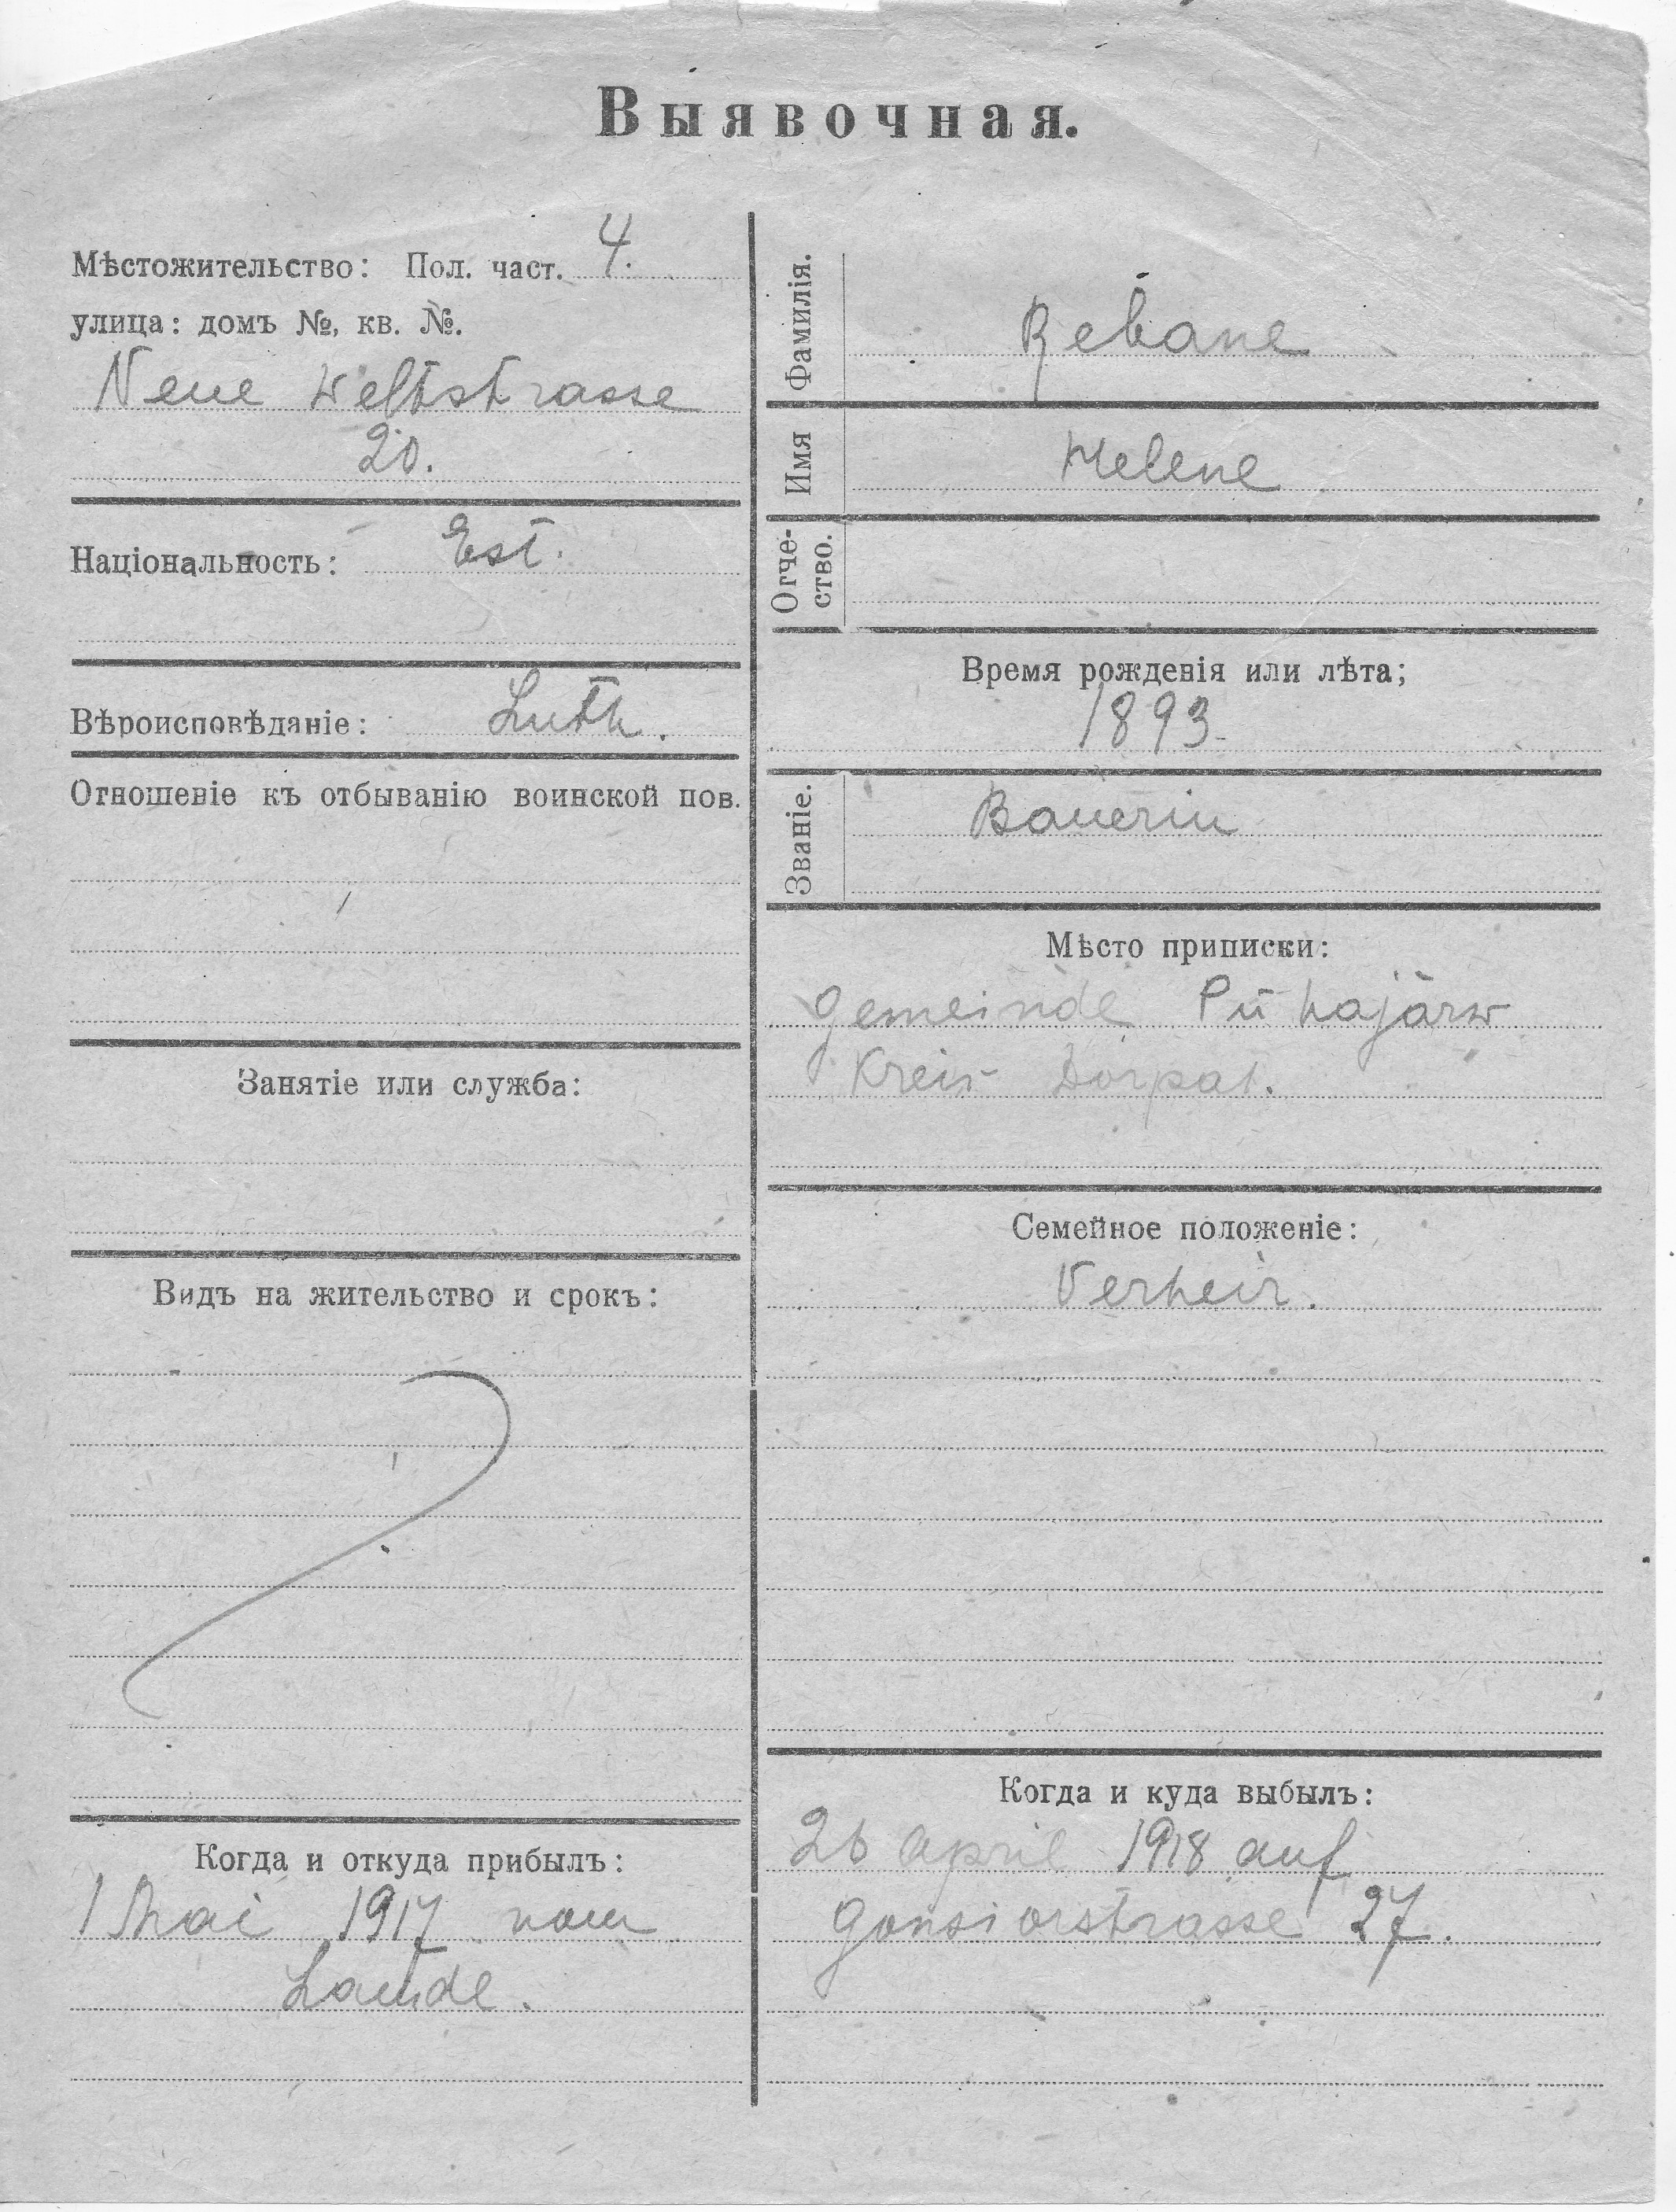 Выявочная.
Мѣстожительство: Пол. част. 4.
улица: домъ №, кв. №.
Neue Weltstrasse
20.
Національность: Est.
Вѣроисповѣданіе: Luth.
Отношеніе къ отбыванію воинской пов.
Занятіе или служба:
Видъ на жительство и срокъ:
Когда и откуда прибылъ:
1 Mai 1917 vom
Lande.
Фамилія. Rebane
Имя Helene
Отче-
ство.
Время рожденія или лѣта;
1893
Званіе. Bauerin
Мѣсто приписки:
Gemeinde Pühajärw
Kreis Dorpat.
Семейное положеніе:
Verheir.
Когда и куда выбылъ:
26 April 1918 auf
Gonsiorstrasse 27.